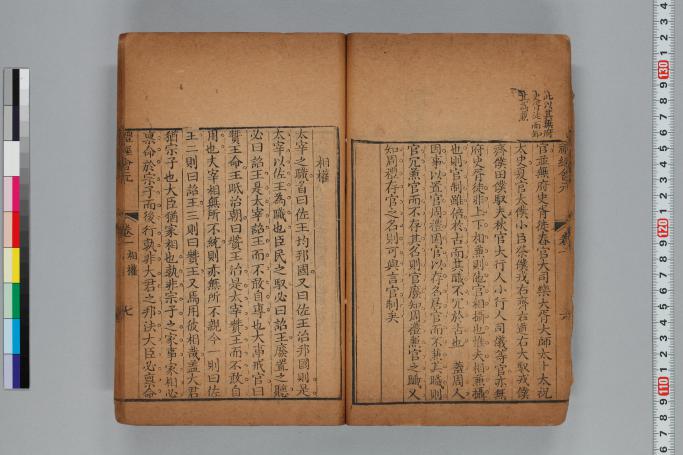 此以其無府
史胥徒而知
其為兼
官並無府史胥徒春官大司樂大胥大師太卜太祝
太史夏官太僕小臣祭僕戎右齊右道右大馭戎僕
齊僕田僕馭夫秋官大行人小行人司儀等官亦無
府史胥徒非上下相兼則他官相攝也惟夫相兼攝
也則官制雖倍於古而其職不冗於古也 蓋周人
因事以置官周禮因官以存名居官而不兼其職則
官冗兼官而不存其名則官廢知周禮兼官之職又
知周禮存官之名則可與言官制矣
禮經會元
卷一
六
相權
太宰之職首曰佐王均邦國又曰佐王治邦國則是
太宰以佐王為職也臣民之馭必曰詔王廢置之聽
必曰詔王是太宰詔王而不敢自專也大事戒官曰
贊王命王眡治朝曰贊王治是太宰贊王而不敢自
用也大宰相無所不統則亦無所不觀今一則曰佐
王二則曰詔王三則曰贊王又焉用彼相哉蓋大君
猶宗子也大臣猶家相也孰非宗子之家事家相必
稟命於宗子而後行孰非大君之邦法大臣必稟命
禮經會元
卷一
相權
七